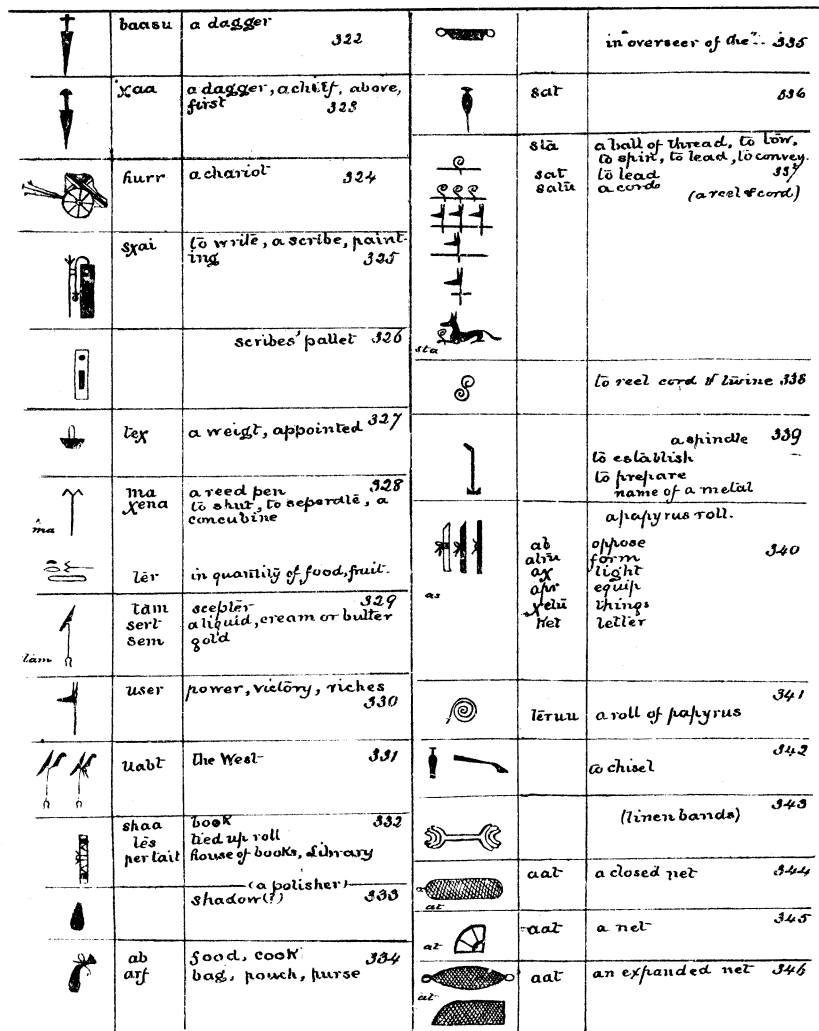 baasu a dagger
322
χaa a dagger, a chief, above,
first 323
hurr a chariot
324
sχai to write, a scribe, paint-
ing 325
scribes' pallet 326
teχ a weigt, appointed 327
ma a reed pen 328
χena to shut, to seperate, a
concubine
ma
ter in quantity of food, fruit.
tam scepter 329
sert a liquid, cream or butter
sem gold
tam
user power, victory, riches
330
uabt the West 331
shaa book 332
tes tied up roll
per tait house of books, Library
(a polisher)
shadow (?) 333
ab food, cook 334
arf bag, pouch, purse
in "overseer of the".. 335
sat 336
sta a ball of thread, to tow,
to spin, to lead, to convey.
sat to lead 337
satu a cord (a reel & cord)
sta
to reel cord or twine 338
a spindle 339
to establish
to prepare
name of a metal
a papyrus roll.
ab oppose 340
form
aχ light
apr equip
χetu things
letter
as
teruu a roll of papyrus 341
to chisel 342
(linen bands) 343
aat a closed net 344
at
aat a net 345
at
aat an expanded net 346
at